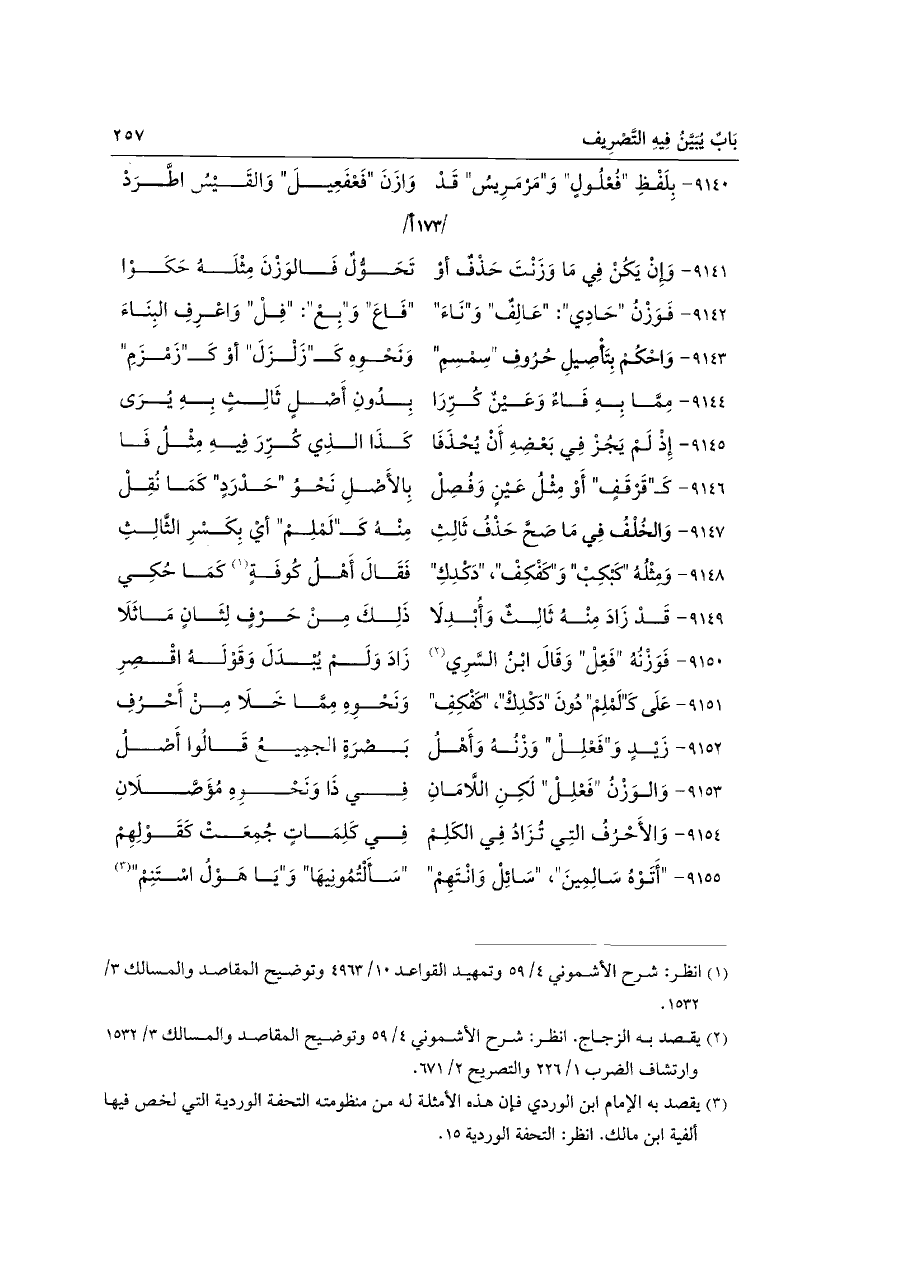 بَابٌ يُبَيَّنُ فِيهِ التَّصْرِيف ٢٥٧
٩١٤٠- بِلَفْظِ "فُعْلُولٍ" وَ"مَرْمَرِيسُ" قَدْ وَازَنَ "فَعْفَعِيلَ" وَالقَيْسُ اطَّرَدْ
/١٧٣أ/
٩١٤١- وَإِنْ يَكُنْ فِي مَا وَزَنْتَ حَذْفٌ أوْ تَحَوُّلٌ فَالوَزْنَ مِثْلَهُ حَكَوْا
٩١٤٢- فَوَزْنُ "حَادِي": "عَالِفٌ" وَ"نَاءَ" "فَاعَ" وَ"بِعْ": "فِلْ" وَاعْرِفِ البِنَاءَ
٩١٤٣- وَاحْكُمْ بِتَأْصِيلِ حُرُوفِ "سِمْسِمِ" وَنَحْوِهِ كَـ"زَلْزَلَ" أوْ كَـ"زَمْزَمِ"
٩١٤٤- مِمَّا بِهِ فَاءٌ وَعَيْنٌ كُرِّرَا بِدُونِ أَصْلٍ ثَالِثٍ بِهِ يُرَى
٩١٤٥- إِذْ لَمْ يَجُزْ فِي بَعْضِهِ أَنْ يُحْذَفَا كَذَا الذِي كُرِّرَ فِيهِ مِثْلُ فَا
٩١٤٦- كَـ"قَرْقَفٍ" أوْ مِثْلُ عَيْنٍ وَفُصِلْ بِالأَصْلِ نَحْوُ "حَدْرَدٍ" كَمَا نُقِلْ
٩١٤٧- وَالخُلْفُ فِي مَا صَحَّ حَذْفُ ثَالِثِ مِنْهُ كَـ"لَمْلِمْ" أيْ بِكَسْرِ الثَّالِثِ
٩١٤٨- وَمِثْلُهُ "كَبْكِبْ" وَ"كَفْكِفْ"، "دَكْدِكِ" فَقَالَ أَهْلُ كُوفَةٍ(١) كَمَا حُكِي
٩١٤٩- قَدْ زَادَ مِنْهُ ثَالِثٌ وَأُبْدِلَا ذَلِكَ مِنْ حَرْفٍ لِثَانٍ مَاثَلَا
٩١٥٠- فَوَزْنُهُ "فَعِّلْ" وَقَالَ ابْنُ السَّرِي(٢) زَادَ وَلَمْ يُبْدَلْ وَقَوْلَهُ اقْصِرِ
٩١٥١- عَلَى كَـ"لَمْلِمْ" دُونَ "دَكْدِكْ"، "كَفْكِفِ" وَنَحْوِهِ مِمَّا خَلَا مِنْ أَحْرُفِ
٩١٥٢- زَيْدٍ وَ"فَعْلِلْ" وَزْنُهُ وَأَهْلُ بَصْرَةٍ الجمِيعُ قَالُوا أَصْلُ
٩١٥٣- وَالوَزْنُ "فَعْلِلْ" لَكِنِ اللَّامَانِ فِي ذَا وَنَحْوِهِ مُؤَصَّلَانِ
٩١٥٤- وَالأَحْرُفُ التِي تُزَادُ فِي الكَلِمْ فِي كَلِمَاتٍ جُمِعَتْ كَقَوْلِهِمْ
٩١٥٥- "أَتَوْهُ سَالِمِينَ"، "سَائِلْ وَانْتَهِمْ" "سَأَلْتُمُونِيهَا" وَ"يَا هَوْلُ اسْتَنِمْ"(٣)
(١) انظر: شرح الأشموني ٤/ ٥٩ وتمهيد القواعد ١٠/ ٤٩٦٣ وتوضيح المقاصد والمسالك ٣/
١٥٣٢.
(٢) يقصد به الزجاج. انظر: شرح الأشموني ٤/ ٥٩ وتوضيح المقاصد والمسالك ٣/ ١٥٣٢
وارتشاف الضرب ١/ ٢٢٦ والتصريح ٢/ ٦٧١.
(٣) يقصد به الإمام ابن الوردي فإن هذه الأمثلة له من منظومته التحفة الوردية التي لخص فيها
ألفية ابن مالك. انظر: التحفة الوردية ١٥.